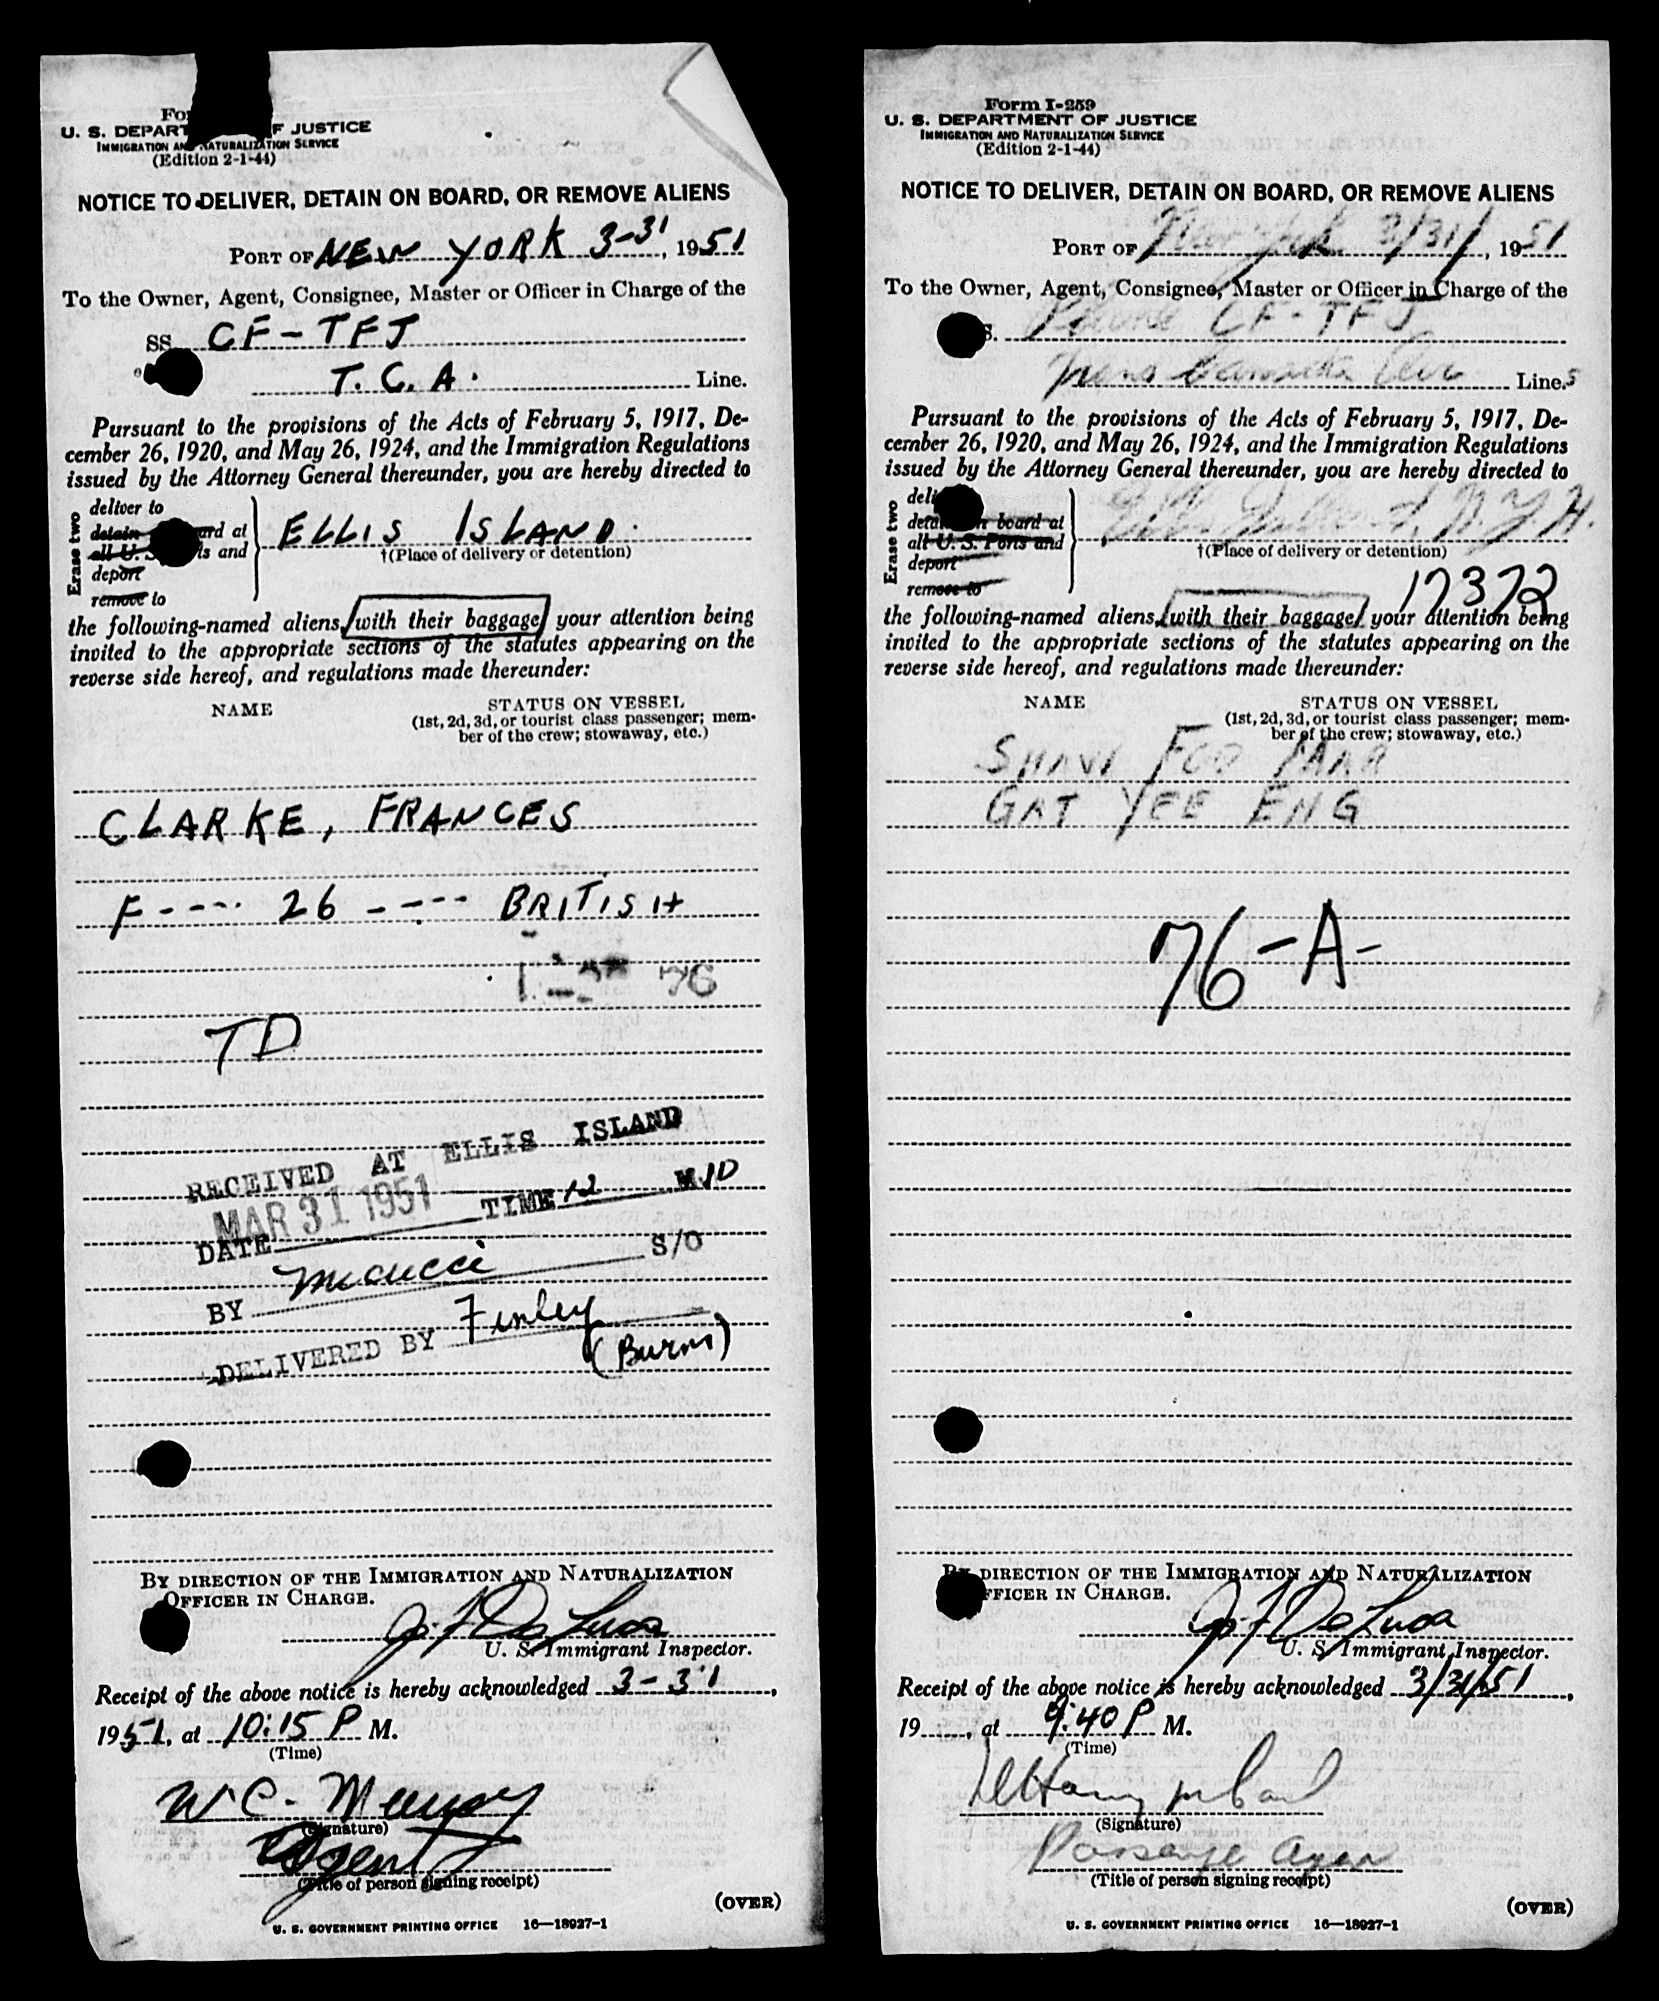 For
U. S. DEPART F JUSTICE
IMMIGRATION AND NATURALIZATION SERVICE
(Edition 2-1-44)
NOTICE TO DELIVER, DETAIN ON BOARD, OR REMOVE ALIENS
PORT OF NEW YORK 3-31, 1951
To the Owner, Agent, Consignee, Master or Officer in Charge of the
SS CF-TFJ
T. C. A. Line.
Pursuant to the provisions of the Acts of February 5, 1917, De-
cember 26, 1920, and May 26, 1924, and the Immigration Regulations
issued by the Attorney General thereunder, you are hereby directed to
Erase two
deliver to
detain ard at
all U. S. ts and
deport
remove to
ELLIS ISLAND.
†(Place of delivery or detention)
the following-named aliens, with their baggage, your attention being
invited to the appropriate sections of the statutes appearing on the
reverse side hereof, and regulations made thereunder:
NAME STATUS ON VESSEL
(1st, 2d, 3d, or tourist class passenger; mem-
ber of the crew; stowaway, etc.)
CLARKE, FRANCES
F---- 26 ---- BRITISH
76
TD
RECEIVED AT ELLIS ISLAND
MAR 31 1951
DATE TIME 12 MID
BY Micucci S/O
DELIVERED BY Finley
(Burns)
BY DIRECTION OF THE IMMIGRATION AND NATURALIZATION
OFFICER IN CHARGE.
J. F. De Luca
U. S. Immigrant Inspector.
Receipt of the above notice is hereby acknowledged 3-31,
1951, at 10:15 P M.
(Time)
W. C.
(Signature)
Agent
(Title of person signing receipt)
(OVER)
U. S. GOVERNMENT PRINTING OFFICE 16—18927-1
Form I-259
U. S. DEPARTMENT OF JUSTICE
IMMIGRATION AND NATURALIZATION SERVICE
(Edition 2-1-44)
NOTICE TO DELIVER, DETAIN ON BOARD, OR REMOVE ALIENS
PORT OF New York 3/31/, 1951
To the Owner, Agent, Consignee, Master or Officer in Charge of the
S. Plane CF-TFJ
Trans Canada Air Lines
Pursuant to the provisions of the Acts of February 5, 1917, De-
cember 26, 1920, and May 26, 1924, and the Immigration Regulations
issued by the Attorney General thereunder, you are hereby directed to
Erase two
deli
detain on board at
all U. S. Ports and
deport
remove to
Ellis Island, N.Y.H.
†(Place of delivery or detention)
17372
the following-named aliens, with their baggage, your attention being
invited to the appropriate sections of the statutes appearing on the
reverse side hereof, and regulations made thereunder:
NAME STATUS ON VESSEL
(1st, 2d, 3d, or tourist class passenger; mem-
ber of the crew; stowaway, etc.)
SHAW FOO MAR
GAT YEE ENG
76-A-
BY DIRECTION OF THE IMMIGRATION AND NATURALIZATION
FFICER IN CHARGE.
J. F. De Luca
U. S. Immigrant Inspector.
Receipt of the above notice is hereby acknowledged 3/31/51,
19, at 9:40 P M.
(Time)
(Signature)
Passenge Agen
(Title of person signing receipt)
(OVER)
U. S. GOVERNMENT PRINTING OFFICE 16—18927-1